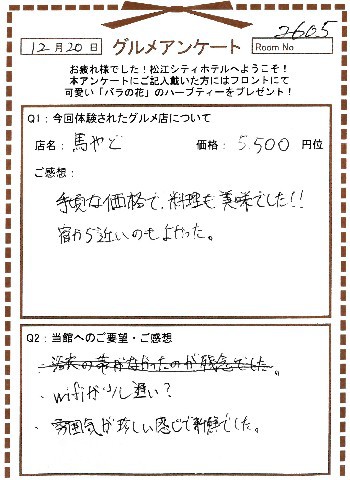 12月20日 グルメアンケート Room No 2605
お疲れ様でした！松江シティホテルへようこそ！
本アンケートにご記入戴いた方にはフロントにて
可愛い「バラの花」のハーブティーをプレゼント！
Q1：今回体験されたグルメ店について
店名：馬やど 価格：5,500円位
ご感想：
手頃な価格で、料理も美味でした!!
宿から近いのもよかった。
Q2：当館へのご要望・ご感想
・浴衣の帯がなかったのが残念でした。
・wifiが少し遅い？
・雰囲気が珍しい感じで新鮮でした。